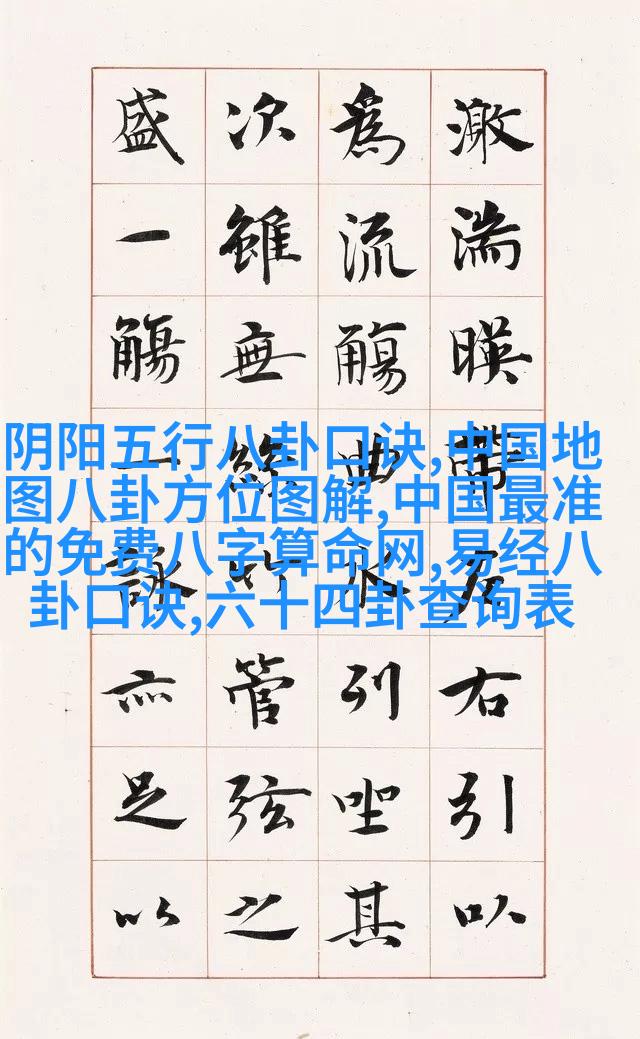 激湍暎帶左右引以
為流觴曲水列坐其
次雖無絲竹管弦之
盛一觴一詠亦足以
阴阳五行八卦口诀,中国地
图八卦方位图解,中国最准
的免费八字算命网,易经八
卦口诀,六十四卦查询表